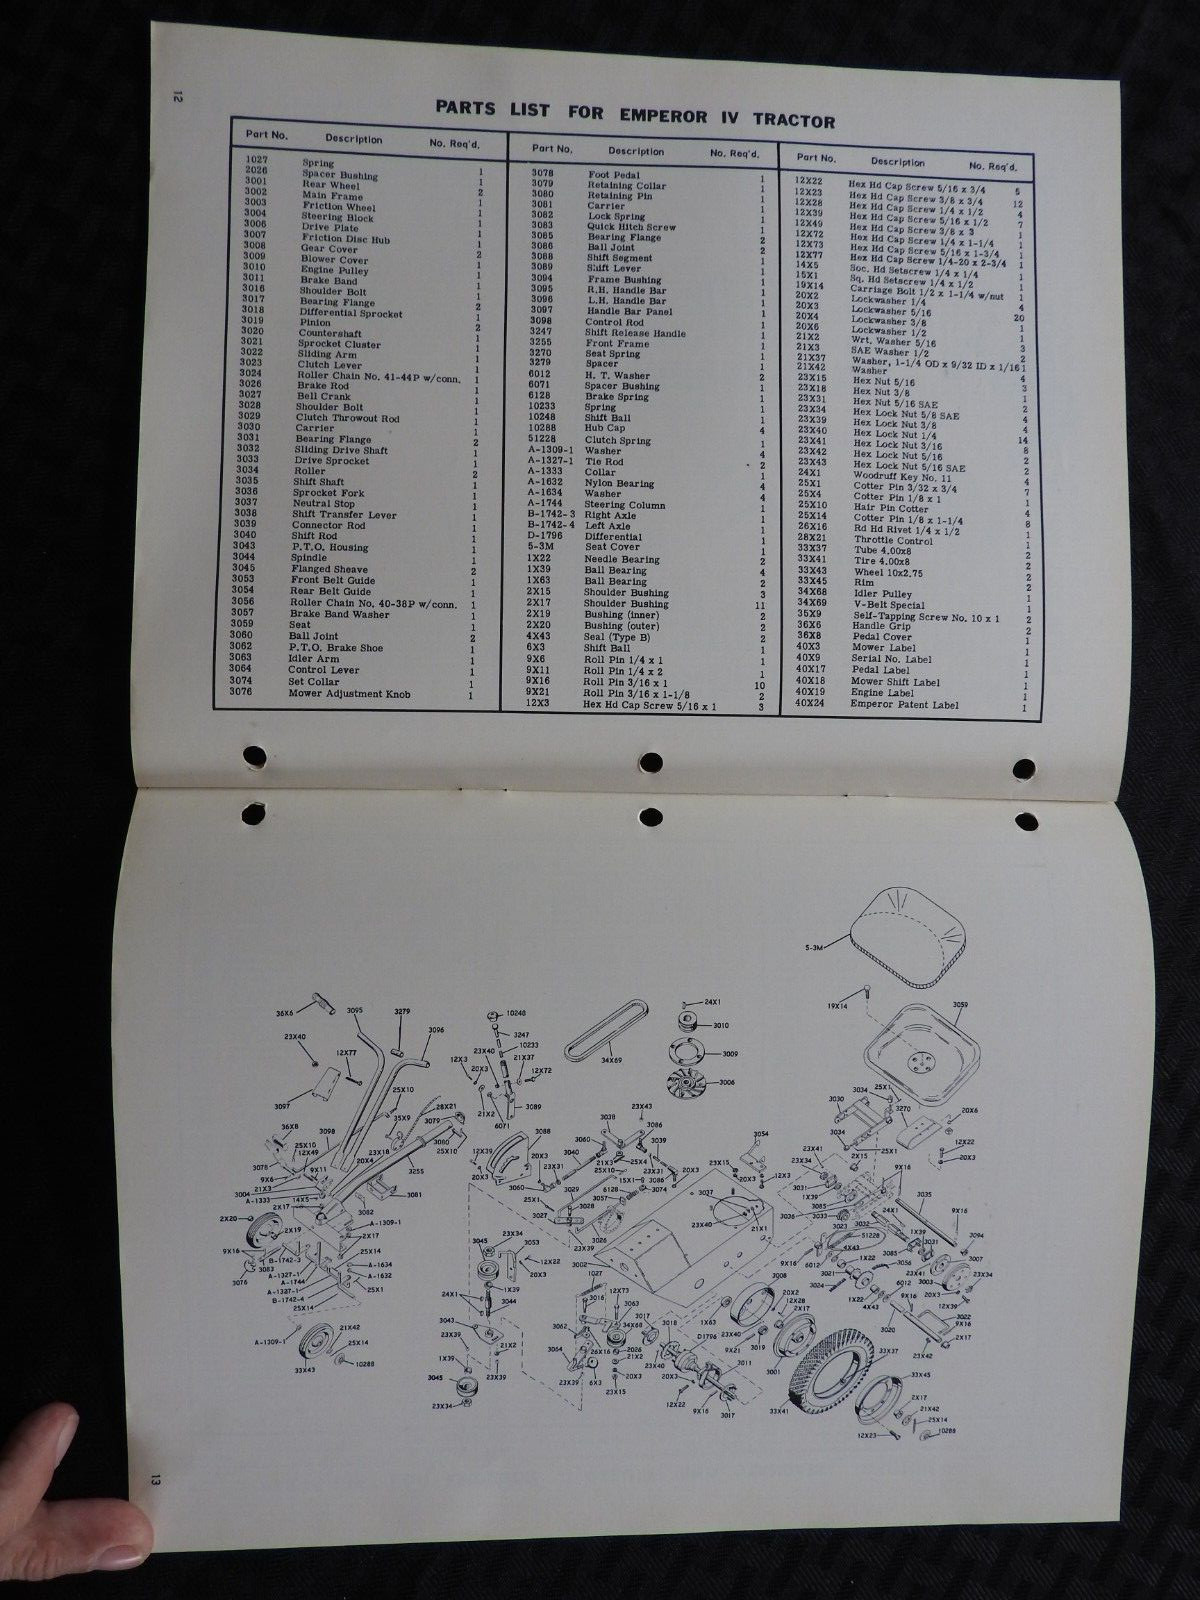 12
PARTS LIST FOR EMPEROR IV TRACTOR
Part No. Description No. Req'd.
1027 Spring 1
2026 Spacer Bushing 1
3001 Rear Wheel 2
3002 Main Frame 1
3003 Friction Wheel 1
3004 Steering Block 1
3006 Drive Plate 1
3007 Friction Disc Hub 1
3008 Gear Cover 2
3009 Blower Cover 1
3010 Engine Pulley 1
3011 Brake Band 1
3016 Shoulder Bolt 1
3017 Bearing Flange 2
3018 Differential Sprocket 1
3019 Pinion 2
3020 Countershaft 1
3021 Sprocket Cluster 1
3022 Sliding Arm 1
3023 Clutch Lever 1
3024 Roller Chain No. 41-44P w/conn. 1
3026 Brake Rod 1
3027 Bell Crank 1
3028 Shoulder Bolt 1
3029 Clutch Throwout Rod 1
3030 Carrier 1
3031 Bearing Flange 2
3032 Sliding Drive Shaft 1
3033 Drive Sprocket 1
3034 Roller 2
3035 Shift Shaft 1
3036 Sprocket Fork 1
3037 Neutral Stop 1
3038 Shift Transfer Lever 1
3039 Connector Rod 1
3040 Shift Rod 1
3043 P.T.O. Housing 1
3044 Spindle 1
3045 Flanged Sheave 2
3053 Front Belt Guide 1
3054 Rear Belt Guide 1
3056 Roller Chain No. 40-38P w/conn. 1
3057 Brake Band Washer 1
3059 Seat 1
3060 Ball Joint 2
3062 P.T.O. Brake Shoe 1
3063 Idler Arm 1
3064 Control Lever 1
3074 Set Collar 1
3076 Mower Adjustment Knob 1
Part No. Description No. Req'd.
3078 Foot Pedal 1
3079 Retaining Collar 1
3080 Retaining Pin 1
3081 Carrier 1
3082 Lock Spring 1
3083 Quick Hitch Screw 1
3085 Bearing Flange 2
3086 Ball Joint 2
3088 Shift Segment 1
3089 Shift Lever 1
3094 Frame Bushing 1
3095 R.H. Handle Bar 1
3096 L.H. Handle Bar 1
3097 Handle Bar Panel 1
3098 Control Rod 1
3247 Shift Release Handle 1
3255 Front Frame 1
3270 Seat Spring 1
3279 Spacer 1
6012 H. T. Washer 2
6071 Spacer Bushing 1
6128 Brake Spring 1
10233 Spring 1
10248 Shift Ball 1
10288 Hub Cap 4
51228 Clutch Spring 1
A-1309-1 Washer 4
A-1327-1 Tie Rod 2
A-1333 Collar 1
A-1632 Nylon Bearing 4
A-1634 Washer 4
A-1744 Steering Column 1
B-1742-3 Right Axle 1
B-1742-4 Left Axle 1
D-1796 Differential 1
5-3M Seat Cover 1
1X22 Needle Bearing 2
1X39 Ball Bearing 4
1X63 Ball Bearing 2
2X15 Shoulder Bushing 3
2X17 Shoulder Bushing 11
2X19 Bushing (inner) 2
2X20 Bushing (outer) 2
4X43 Seal (Type B) 2
6X3 Shift Ball 1
9X6 Roll Pin 1/4 x 1 1
9X11 Roll Pin 1/4 x 2 1
9X16 Roll Pin 3/16 x 1 10
9X21 Roll Pin 3/16 x 1-1/8 2
12X3 Hex Hd Cap Screw 5/16 x 1 3
Part No. Description No. Req'd.
12X22 Hex Hd Cap Screw 5/16 x 3/4 5
12X23 Hex Hd Cap Screw 3/8 x 3/4 12
12X28 Hex Hd Cap Screw 1/4 x 1/2 4
12X39 Hex Hd Cap Screw 5/16 x 1/2 7
12X49 Hex Hd Cap Screw 3/8 x 3 1
12X72 Hex Hd Cap Screw 1/4 x 1-1/4 1
12X73 Hex Hd Cap Screw 5/16 x 1-3/4 1
12X77 Hex Hd Cap Screw 1/4-20 x 2-3/4 1
14X5 Soc. Hd Setscrew 1/4 x 1/4 1
15X1 Sq. Hd Setscrew 1/4 x 1/2 1
19X14 Carriage Bolt 1/2 x 1-1/4 w/nut 1
20X2 Lockwasher 1/4 4
20X3 Lockwasher 5/16 20
20X4 Lockwasher 3/8 1
20X6 Lockwasher 1/2 1
21X2 Wrt. Washer 5/16 3
21X3 SAE Washer 1/2 2
21X37 Washer, 1-1/4 OD x 9/32 ID x 1/16 1
21X42 Washer 4
23X15 Hex Nut 5/16 3
23X18 Hex Nut 3/8 1
23X31 Hex Nut 5/16 SAE 2
23X34 Hex Lock Nut 5/8 SAE 4
23X39 Hex Lock Nut 3/8 4
23X40 Hex Lock Nut 1/4 14
23X41 Hex Lock Nut 3/16 8
23X42 Hex Lock Nut 5/16 2
23X43 Hex Lock Nut 5/16 SAE 2
24X1 Woodruff Key No. 11 4
25X1 Cotter Pin 3/32 x 3/4 7
25X4 Cotter Pin 1/8 x 1 1
25X10 Hair Pin Cotter 4
25X14 Cotter Pin 1/8 x 1-1/4 8
26X16 Rd Hd Rivet 1/4 x 1/2 1
28X21 Throttle Control 1
33X37 Tube 4.00x8 2
33X41 Tire 4.00x8 2
33X43 Wheel 10x2.75 2
33X45 Rim 2
34X68 Idler Pulley 1
34X69 V-Belt Special 1
35X9 Self-Tapping Screw No. 10 x 1 2
36X6 Handle Grip 2
36X8 Pedal Cover 2
40X3 Mower Label 1
40X9 Serial No. Label 1
40X17 Pedal Label 1
40X18 Mower Shift Label 1
40X19 Engine Label 1
40X24 Emperor Patent Label 1
5-3M
19X14
3059
36X6
3095
3279
3096
23X40
12X77
3097
10248
3247
10233
23X40
21X37
12X3
20X3
12X72
21X2
6071
3089
34X69
24X1
3010
3009
3006
25X10
28X21
3079
35X9
36X8
25X10
12X49
3098
3078
9X6
9X11
20X4
23X18
3255
3080
25X10
21X3
3004
A-1333
14X5
2X17
3081
3082
A-1309-1
2X20
2X19
2X17
25X14
9X16
3076
3083
B-1742-3
A-1327-1
A-1744
A-1327-1
B-1742-4
25X14
A-1634
A-1632
25X1
A-1309-1
21X42
25X14
10288
33X43
3088
12X39
20X3
20X3
23X31
3060
3040
3060
3038
23X43
3086
3039
21X3
25X4
25X10
23X31
15X1
3086
20X3
6128
3074
3029
3057
25X1
3028
3027
3026
23X39
3002
23X34
3045
3053
12X22
20X3
1X39
24X1
3044
3043
23X39
21X2
1X39
23X39
3045
23X34
1027
3016
12X73
3063
3062
34X68
26X16
3064
2026
21X2
20X3
23X39
6X3
23X15
3017
3018
D1796
23X40
3011
20X3
12X22
9X16
3017
3054
23X15
20X3
12X3
3037
23X40
21X1
3008
20X2
12X28
2X17
1X63
23X40
9X21
3019
3001
33X41
33X37
33X45
2X17
21X42
25X14
10288
12X23
3034
25X1
3030
3270
20X6
3034
12X22
20X3
25X1
2X15
23X41
9X16
3031
1X39
3085
3036
3033
3035
24X1
9X16
3023
3032
3094
51228
1X39
3031
3007
4X43
3085
9X16
6012
1X22
3056
23X41
23X34
3021
3024
6012
3003
1X22
4X43
9X16
12X39
20X3
3022
9X16
3020
2X17
23X42
13